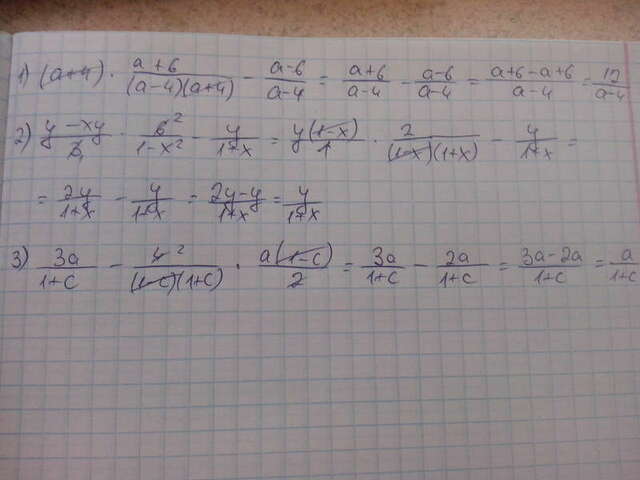 1) (a+4) · (a+6)/((a-4)(a+4)) - (a-6)/(a-4) = (a+6)/(a-4) - (a-6)/(a-4) = (a+6-a+6)/(a-4) = 12/(a-4)
2) (y-xy)/3 · 6²/(1-x²) - y/(1+x) = y(1-x)/1 · 2/((1-x)(1+x)) - y/(1+x) =
= 2y/(1+x) - y/(1+x) = (2y-y)/(1+x) = y/(1+x)
3) 3a/(1+c) - 4²/((1-c)(1+c)) · a(1-c)/2 = 3a/(1+c) - 2a/(1+c) = (3a-2a)/(1+c) = a/(1+c)